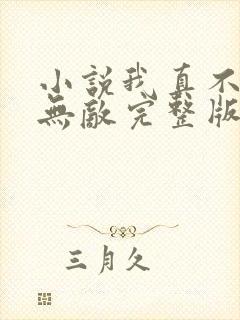 小説我真不
無敵完整版
三月久